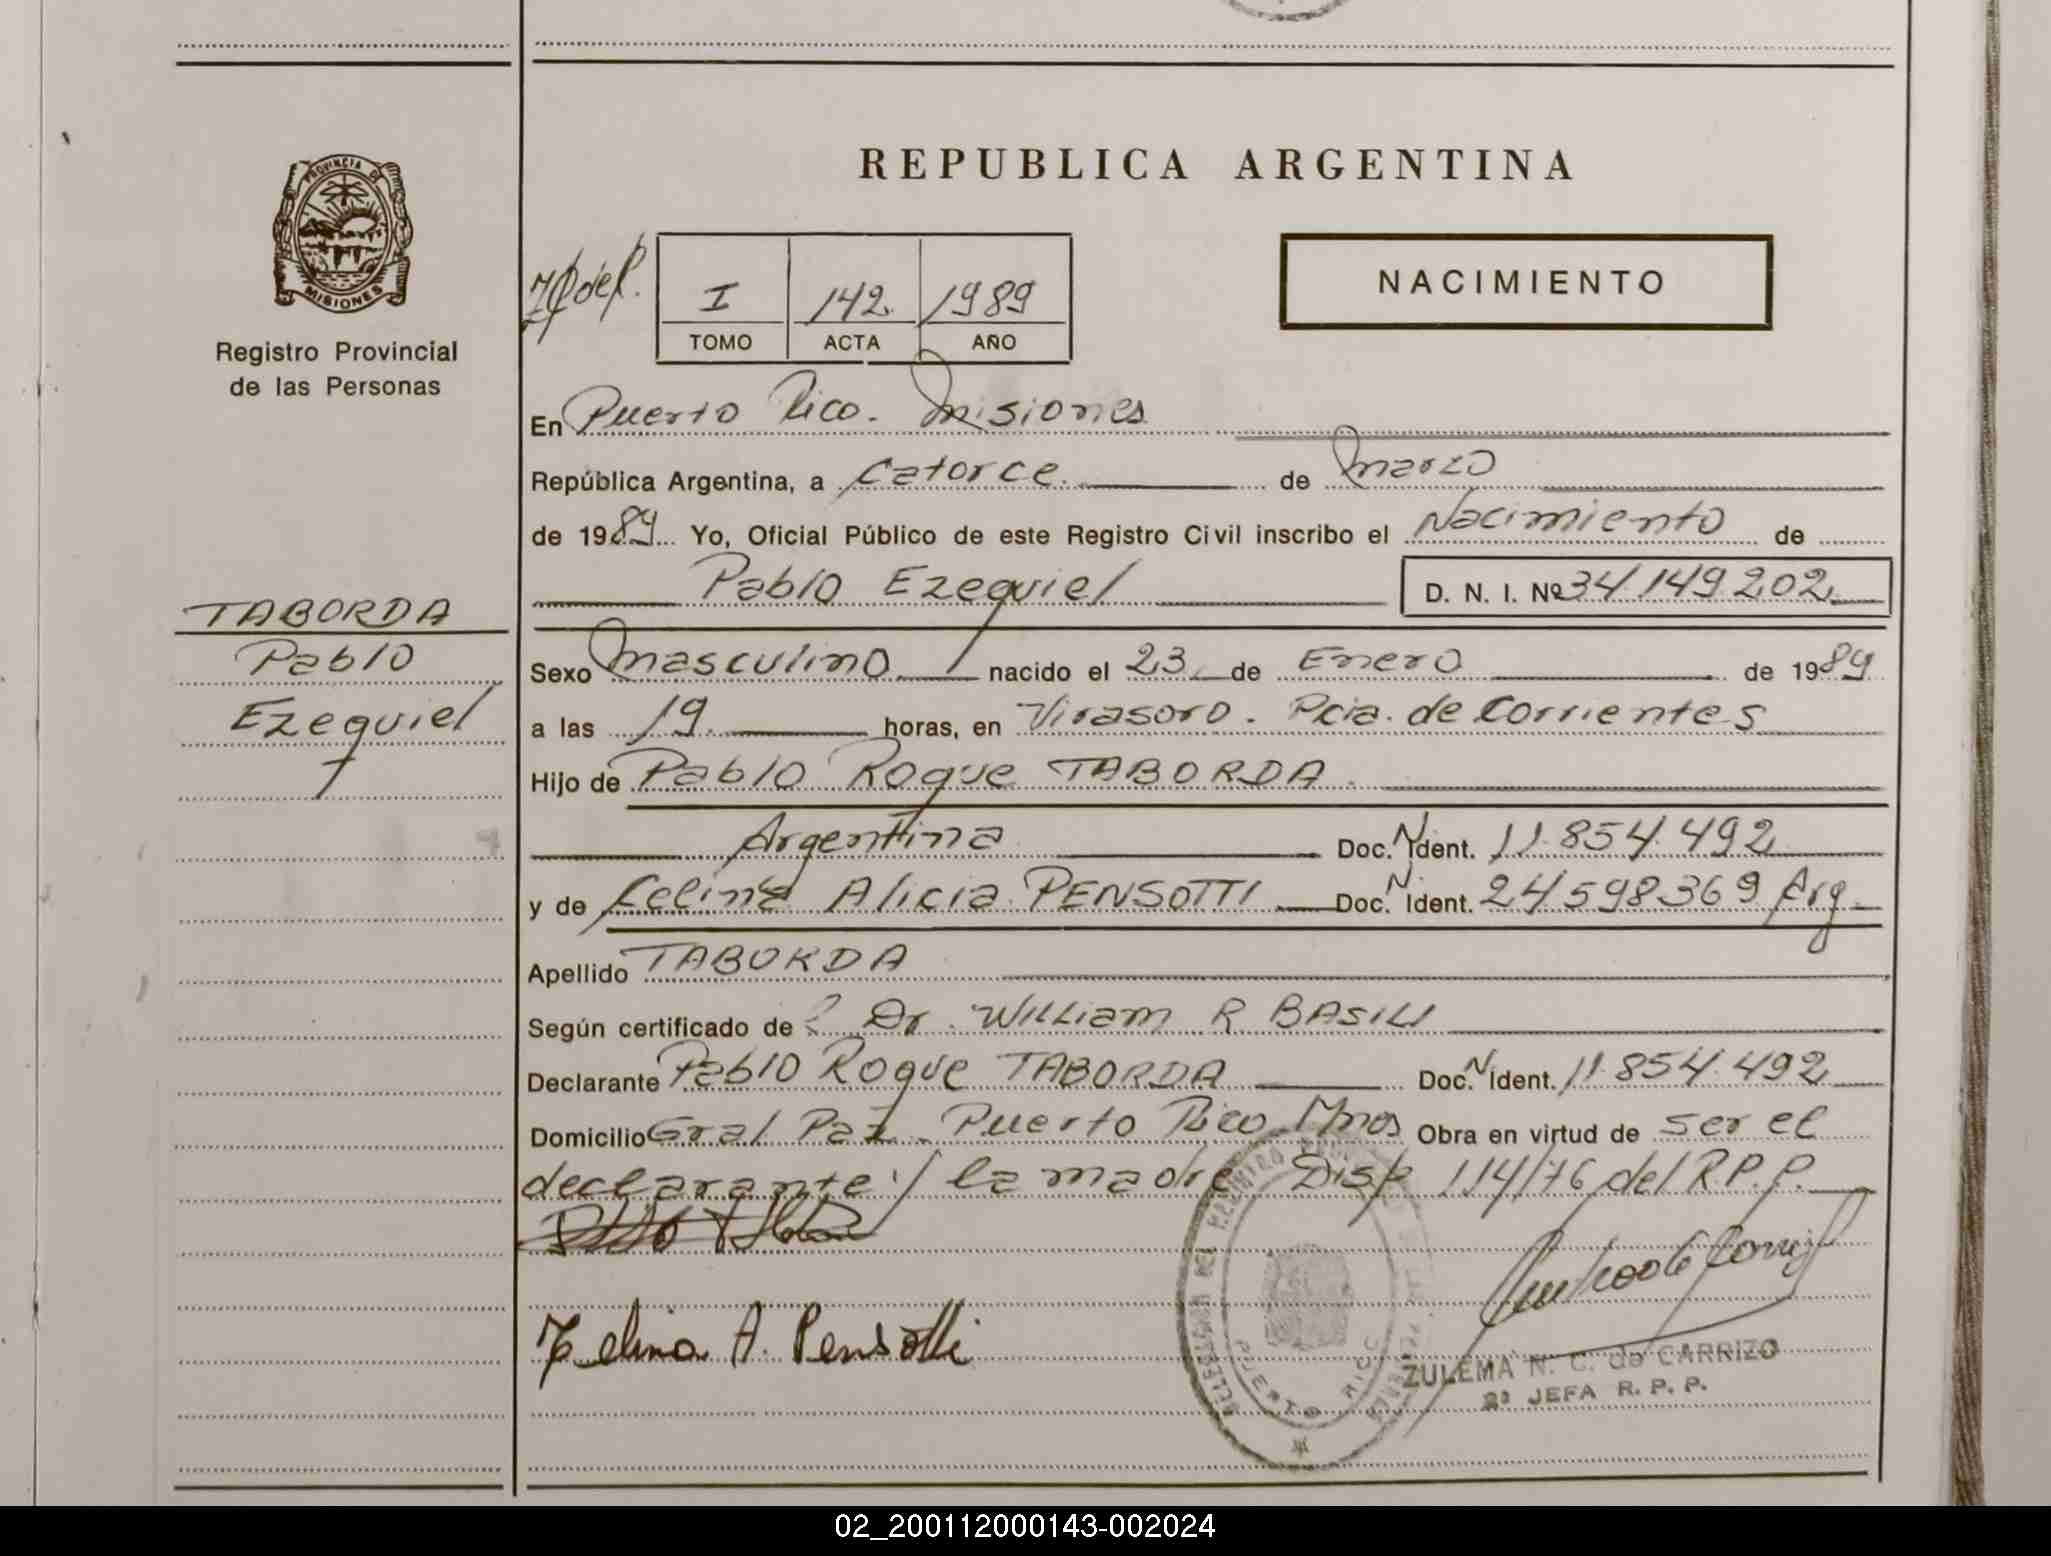 REPUBLICA ARGENTINA
PROVINCIA DE
MISIONES
Registro Provincial
de las Personas
I 142 1989
TOMO ACTA AÑO
NACIMIENTO
En Puerto Rico. Misiones
República Argentina, a catorce. de marzo
de 1989 Yo, Oficial Público de este Registro Civil inscribo el Nacimiento de
Pablo Ezequiel D. N. I. Nº 34.149.202
TABORDA
Pablo
Ezequiel
Sexo masculino nacido el 23 de Enero de 1989
a las 19. horas, en Virasoro. Pcia. de Corrientes
Hijo de Pablo Roque TABORDA.
Argentina Doc. N. Ident. 11.854.492
y de Celina Alicia PENSOTTI Doc. N. Ident. 24.598.369 Arg.
Apellido TABORDA
Según certificado de Dr. William R BASILI
Declarante Pablo Roque TABORDA Doc. N Ident. 11.854.492
Domicilio Gral Paz. Puerto Rico Mnes Obra en virtud de ser el
declarante y la madre Disp 114/76 del R.P.P.
Celina A. Pensotti
PUERTO RICO
ZULEMA N. C. de CARRIZO
2ª JEFA R. P. P.
02_200112000143-002024